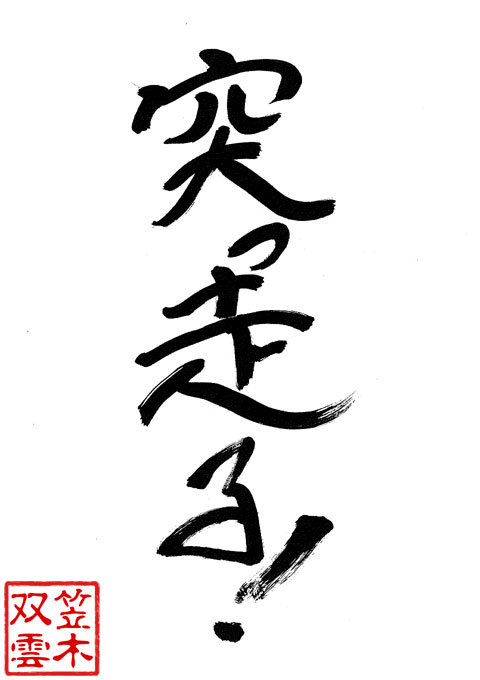 突っ走る!
笠木
双雲